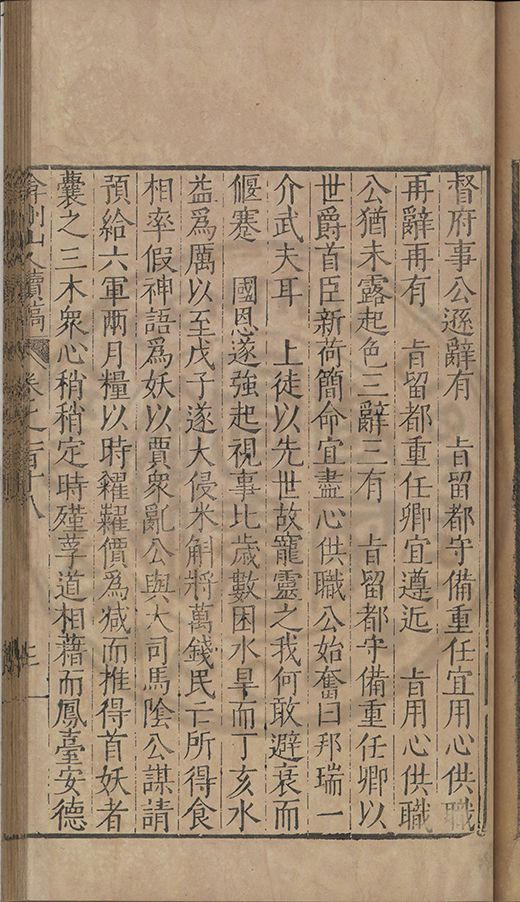 督府事公遜辭有　旨留都守備重任宜用心供職
再辭再有　旨留都重任卿宜遵近　旨用心供職
公猶未露起色三辭三有　旨留都守備重任卿以
世爵首臣新荷簡命宜盡心供職公始奮曰邦瑞一
介武夫耳　上徒以先世故寵靈之我何敢避衰而
偃蹇　國恩遂強起視事比歲數困水旱而丁亥水
益爲厲以至戊子遂大侵米斛將萬錢民亡所得食
相率假神語爲妖以賈衆亂公與大司馬陰公謀請
預給六軍兩月糧以時糴糶價爲减而推得首妖者
囊之三木衆心稍稍定時殣莩道相藉而鳳臺安德
弇州山人續稿　卷之一百十八